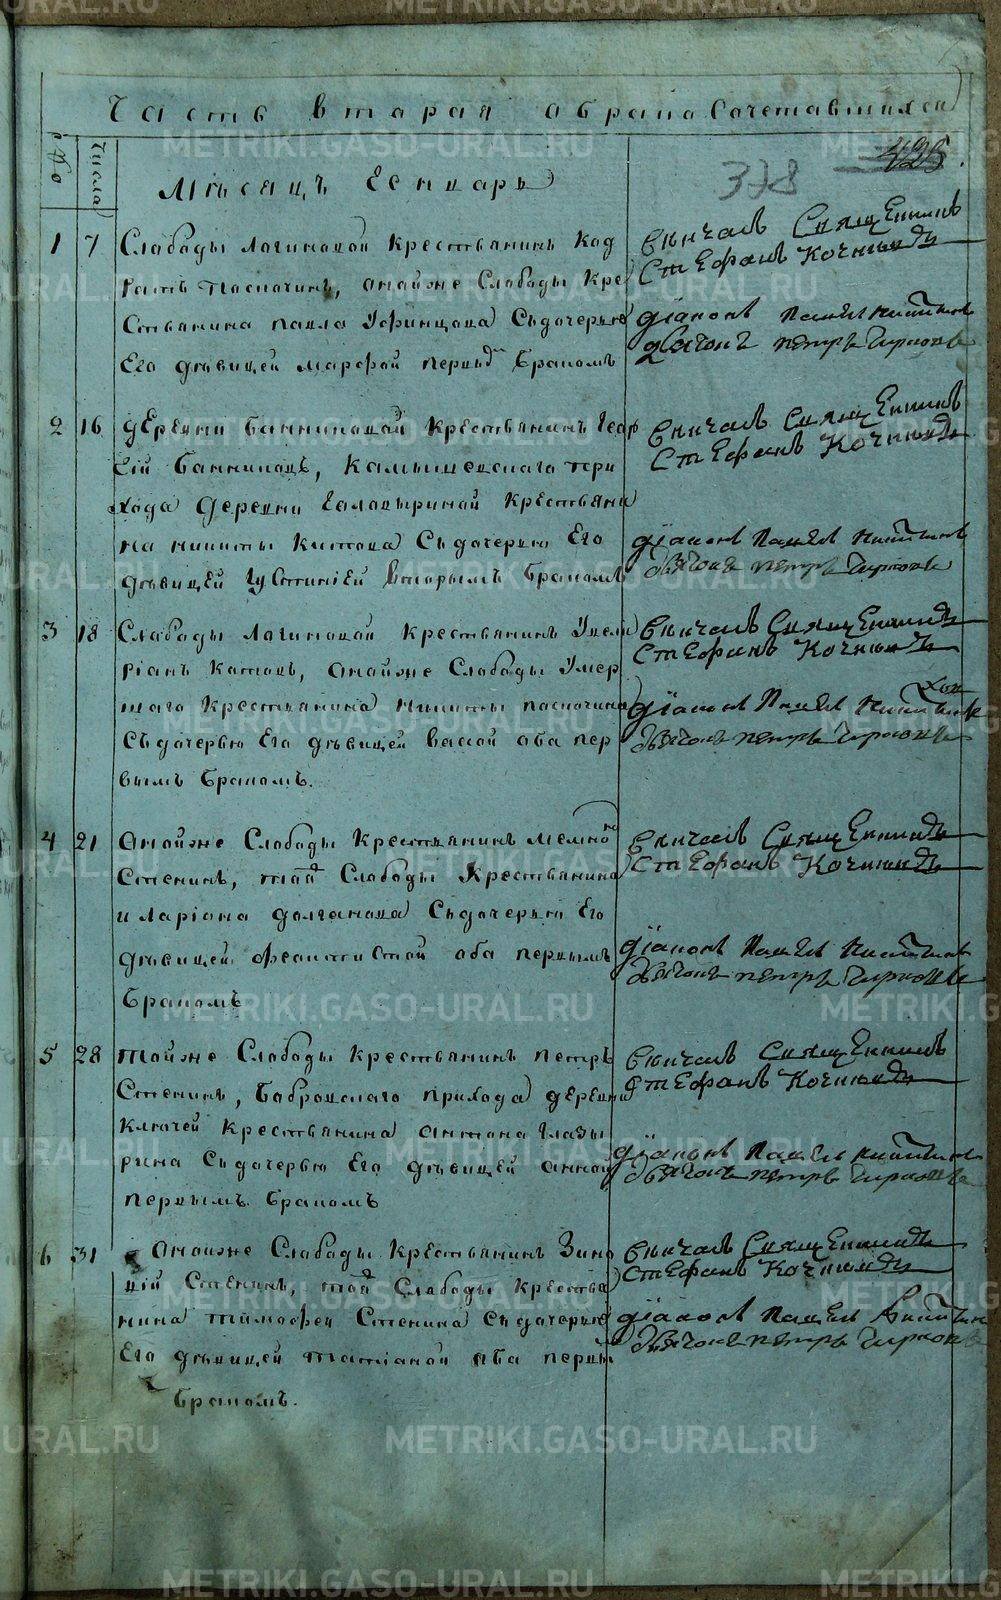 Часть вторая о бракосочетавшихся
№
числа
Мѣсяцъ Генварь
378
425.
1 7 Слабоды Логиновой крестьянинъ Код
ратъ Паспочинъ, онойже Слабоды кре
стьянина Павла Уфинцова Съдочерью
Его дѣвицей Марфой первыд бракомъ
Венчалъ Священникъ
Стефанъ Кочневъ
Діаконъ Павелъ Никитинъ
дьячокъ Петръ
2 16 деревни Банниковой крестьянинъ Геор
гій Банниковъ, Камышевскаго при
хода деревни Галадыриной крестьяни
на Никиты Китова Съдочерью Его
дѣвицей Іустиніей вторымъ бракомъ
Венчалъ Священникъ
Стефанъ Кочневъ
Діаконъ Павелъ Никитинъ
дьячокъ Петръ
3 18 Слабоды Логиновой крестьянинъ
ріанъ Катовъ, онойже Слабоды Умер
шаго крестьянина Никиты Паспочина
Съдочерью Его дѣвицей Васой оба пер
вымъ бракомъ.
Венчалъ Священникъ
Стефанъ Кочневъ
Діаконъ Павелъ Никитинъ
дьячокъ Петръ
4 21 онойже Слабоды крестьянинъ
Стенинъ, той Слабоды крестьянина
иларіона Долганова Съдочерью Его
дѣвицей Феоктистой оба первымъ
бракомъ
Венчалъ Священникъ
Стефанъ Кочневъ
Діаконъ Павелъ Никитинъ
дьячокъ Петръ
5 28 тойже Слабоды крестьянинъ Петръ
Стенинъ, Бобровскаго прихода деревни
Ключей крестьянина Антона Глазы
рина Съдочерью Его дѣвицей Анной
первымъ бракомъ
Венчалъ Священникъ
Стефанъ Кочневъ
Діаконъ Павелъ Никитинъ
дьячокъ Петръ
6 31 онойже Слабоды крестьянинъ Зино
вій Стенинъ, той Слабоды крестья
нина Тимофея Стенина Съдочерью
Его дѣвицей Татіаной оба первы
бракомъ.
Венчалъ Священникъ
Стефанъ Кочневъ
Діаконъ Павелъ Никитин
дьячокъ Петръ
METRIKI.GASO-URAL.RU